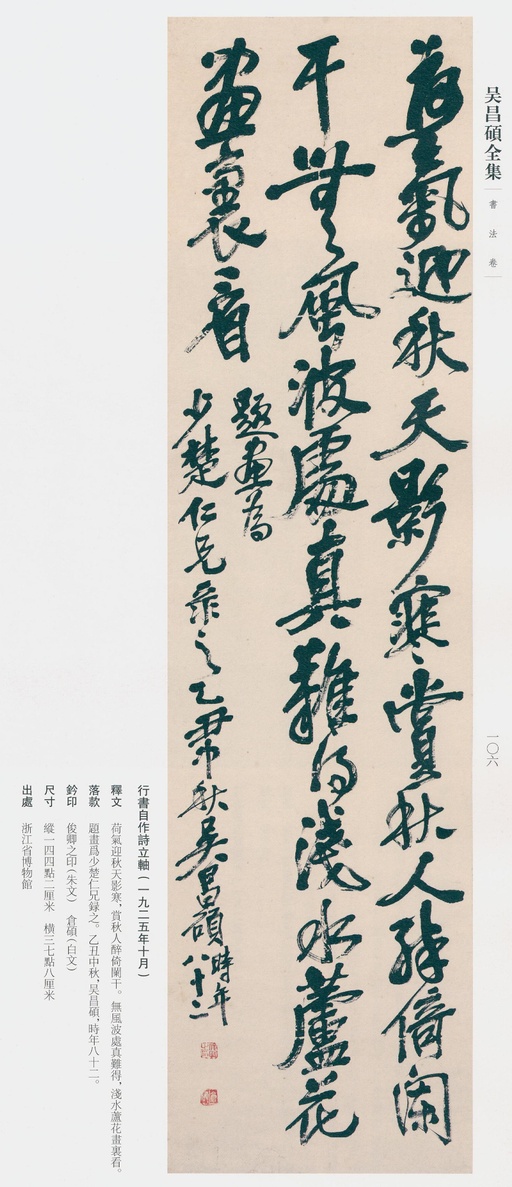 吴昌碩全集
書法卷
一〇六
荷氣迎秋天影寒賞秋人醉倚闌
干無風波處真難得淺水蘆花
畫裏看
題畫為
少楚仁兄录之乙丑中秋吴昌碩時年八十二
行書自作詩立軸（一九二五年十月）
釋文　荷氣迎秋天影寒，賞秋人醉倚闌干。無風波處真難得，淺水蘆花畫裏看。
落款　題畫爲少楚仁兄録之。乙丑中秋，吴昌碩，時年八十二。
鈐印　俊卿之印（朱文）　倉碩（白文）
尺寸　縱一四四點二厘米　橫三七點八厘米
出處　浙江省博物館